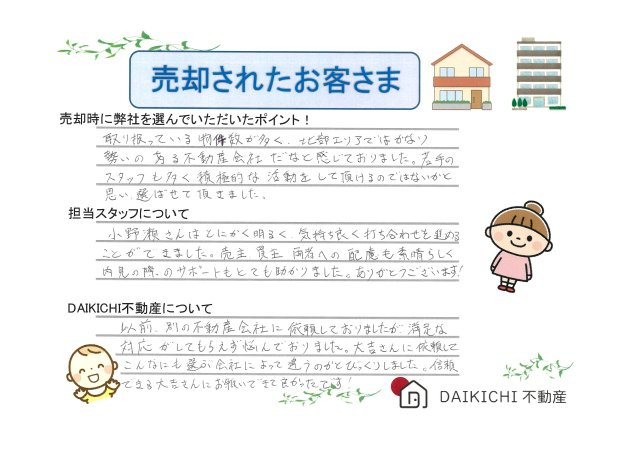 売却されたお客さま
売却時に弊社を選んでいただいたポイント！
取り扱っている物件数が多く、北部エリアではかなり
勢いのある不動産会社だなと感じておりました。若手の
スタッフも多く積極的な活動をして頂けるのではないかと
思い選ばせて頂きました。
担当スタッフについて
小野瀬さんはとにかく明るく、気持ち良く打ち合わせを進める
ことができました。売主 買主 両者への配慮も素晴らしく
内見の際のサポートもとても助かりました。ありがとうございます！
DAIKICHI不動産について
以前、別の不動産会社に依頼しておりましたが満足な
対応がしてもらえず悩んでおりました。大吉さんに依頼して
こんなにも選ぶ会社によって違うのかとびっくりしました。信頼
できる大吉さんにお願いできて良かったです！
DAIKICHI 不動産